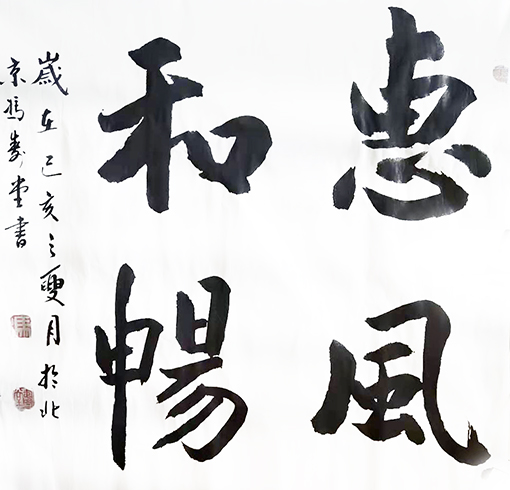 惠風
和暢
歲在己亥之夏月於北
京馮壽堂書